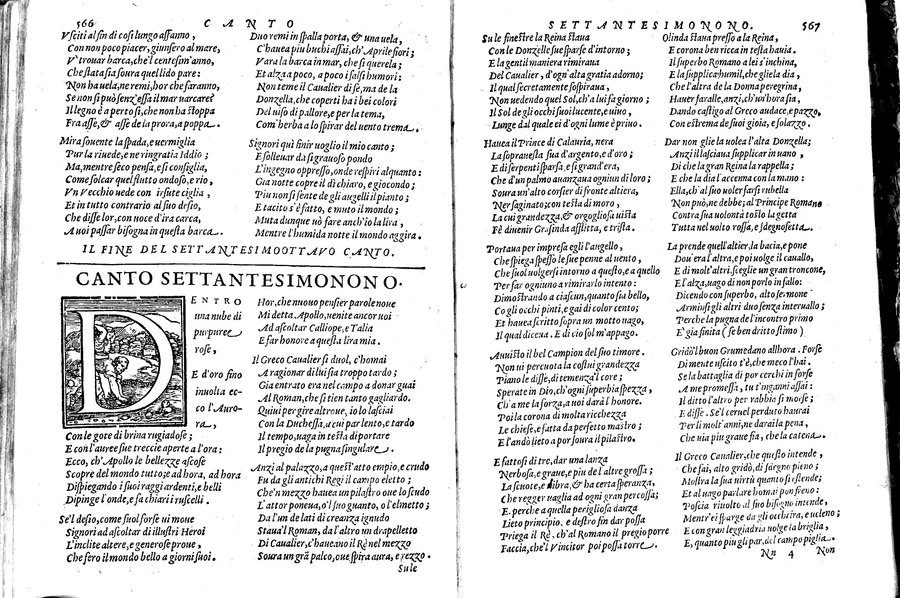 566 CANTO
Vsciti al fin di cosi lungo affanno,
Con non poco piacer, giunsero al mare,
V'trouar barca, che'l centesim'anno,
Che stata sia soura quel lido pare:
Non ha uela, ne remi, hor che faranno,
Se non si può senz'essa il mar uarcare?
Il legno è aperto sì, che non ha stoppa
Fra asse, & asse da la prora, a poppa.
Mira souente la spada, e uermiglia
Pur la riuede, e ne ringratia Iddio;
Ma, mentre seco pensa, e si consiglia,
Come solcar quel flutto ondoso, e rio,
Vn Vecchio uede con irsute ciglia,
Et in tutto contrario al suo desio,
Che disse lor, con uoce d'ira carca,
A uoi passar bisogna in questa barca.
Duo remi in spalla porta, & una uela,
C'hauea piu buchi assai, ch'Aprile fiori;
Vara la barca in mar, che si querela;
Et alza a poco, a poco i salsi humori:
Non teme il Caualier di se, ma de la
Donzella, che coperti ha i bei colori
Del uiso di pallore, e per la tema,
Com'herba a lo spirar del uento trema.
Signori quì finir uoglio il mio canto;
E solleuar da sì grauoso pondo
L'ingegno oppresso, onde respiri alquanto:
Gia notte copre il dì chiaro, e giocondo;
Piu non si sente de gli augelli il pianto;
E tacito s'è fatto, e muto il mondo;
Muta dunque uò fare anch'io la lira,
Mentre l'humida notte il mondo aggira.
IL FINE DEL SETTANTESIMOOTTAVO CANTO.
CANTO SETTANTESIMONONO.
DENTRO
una nube di
purpuree
rose,
E d'oro fino
inuolta ec-
co l'Auro-
ra,
Con le gote di brina rugiadose;
E con l'auree sue treccie aperte a l'ora:
Ecco, ch'Apollo le bellezze ascose
Scopre del mondo tutto; e ad hora, ad hora
Dispiegando i suoi raggi ardenti, e belli
Dipinge l'onde, e fa chiari i ruscelli.
Se'l desio, come suol forse ui moue
Signori ad ascoltar di illustri Heroi
L'inclite altere, e generose proue,
Che fero il mondo bello a giorni suoi.
Hor, che nuouo pensier parole noue
Mi detta Apollo, uenite ancor uoi
Ad ascoltar Calliope, e Talia
E far honore a questa lira mia.
Il Greco Caualier si duol, c'homai
A ragionar di lui sia troppo tardo;
Gia entrato era nel campo a donar guai
Al Roman, che si tien tanto gagliardo.
Qui ui per gire altroue, io lo lasciai
Con la Duchessa, a cui par lento, e tardo
Il tempo, uaga in testa di portare
Il pregio de la pugna singulare.
Anzi al palazzo, a quest'atto empio, e crudo
Fu da gli antichi Regi il campo eletto;
Che'n mezzo hauea un pilastro oue lo scudo
L'attor poneua, o'l suo guanto, o l'elmetto;
Da l'un de lati di creanza ignudo
Staua'l Roman, da l'altro un drapelletto
Di Caualier, c'haueano il Rè nel mezzo
Soura un grã palco, oue spira aura, e rezzo.
Su le
SETTANTESIMONONO. 567
Su le finestre la Reina staua
Con le Donzelle sue sparse d'intorno;
E la gentil maniera rimiraua
Del Caualier, d'ogn'alta gratia adorno;
Il qual secretamente sospiraua,
Non uedendo quel Sol, ch'a lui fa giorno;
Il Sol de gli occhi suoi lucente, e uiuo,
Lunge dal quale ei d'ogni lume è priuo.
Hauea il Prence di Calauria, nera
La soprauesta sua d'argento, e d'oro;
E di serpenti sparsa, e sì grand'era,
Che d'un palmo auanzaua ogniun di loro;
Soura un'alto corsier di fronte altiera,
Ner saginato; con testa di moro,
La cui grandezza, & orgogliosa uista
Fè diuenir Grasinda afflitta, e trista.
Portaua per impresa egli l'augello,
Che spiega spesso le sue penne al uento,
Che suol uolgersi intorno a questo, e a quello
Per far ogniuno a rimirarlo intento:
Dimostrando a ciascun, quanto sia bello,
Co gli occhi pinti, e gai di color cento;
Et hauea scritto sopra un motto uago,
Il qual diceua. E di ciò sol m'appago.
Auuisto il bel Campion del suo timore.
Non ui percuota la costui grandezza
Piano le disse, di temenza'l core;
Sperate in Dio, ch'ogni superbia spezza,
Ch'a me la forza, a uoi darà l'honore.
Poi la corona di molta ricchezza
Le chiese, e fatta da perfetto mastro;
E l'andò lieto a por soura il pilastro.
E fattosi di tre, dar una lanza
Nerbosa, e graue, e piu de l'altre grossa;
La scuote, e uibra, & ha certa speranza,
Che regger uaglia ad ogni gran percossa;
E, perche a quella perigliosa danza
Lieto principio, e destro fin dar possa
Priega il Rè, ch'al Romano il pregio porre
Faccia, che'l Vincitor poi possa torre.
Olinda staua presso a la Reina,
E corona ben ricca in testa hauia.
Il superbo Romano a lei s'inchina,
E la supplica humil, che glie la dia,
Che l'altra de la Donna peregrina,
Hauer faralle, anzi, ch'un'hora sia,
Dando castigo al Greco audace, e pazzo,
Con estrema de suoi gioia, e solazzo.
Dar non glie la uolea l'alta Donzella;
Anzi il lasciaua supplicar in uano,
Di che la gran Reina la rappella;
E che la dia l'accenna con la mano:
Ella, ch'al suo uoler farsi rubella
Non può, ne debbe; al Principe Romano
Contra sua uolontà tosto la getta
Tutta nel uolto rossa, e sdegnosetta.
La prende quell'altier, la bacia, e pone
Dou'era l'altra, e poi uolge il cauallo,
E di molt'altri, sceglie un gran troncone,
E l'alza, uago di non porlo in fallo:
Dicendo con superbo, alto sermone
Arminsi gli altri duo senza interuallo;
Perche la pugna de l'incontro primo
E' gia finita (se ben dritto stimo)
Gridò'l buon Grumedano allhora. Forse
Di mente uscito t'è, che meco l'hai.
Se la battaglia di por cerchi in forse
A me promessa, tu t'inganni assai:
Il ditto l'altro per rabbia si morse;
E disse. Se'l ceruel perduto haurai
Per li molt'anni, ne darai la pena,
Che uia piu graue fia, che la catena.
Il Greco Caualier, che questo intende,
Che fai, alto gridò, di sdegno pieno;
Mostra la sua uirtù quanto si estende;
Et al uago parlare homai pon freno:
Poscia riuolto al suo bisogno intende,
Mentr'ei sparge da gli occhi ira, e ueleno;
E con gran leggiadria uolge la briglia,
E, quanto piu gli par, del campo piglia.
Nn 4 Non